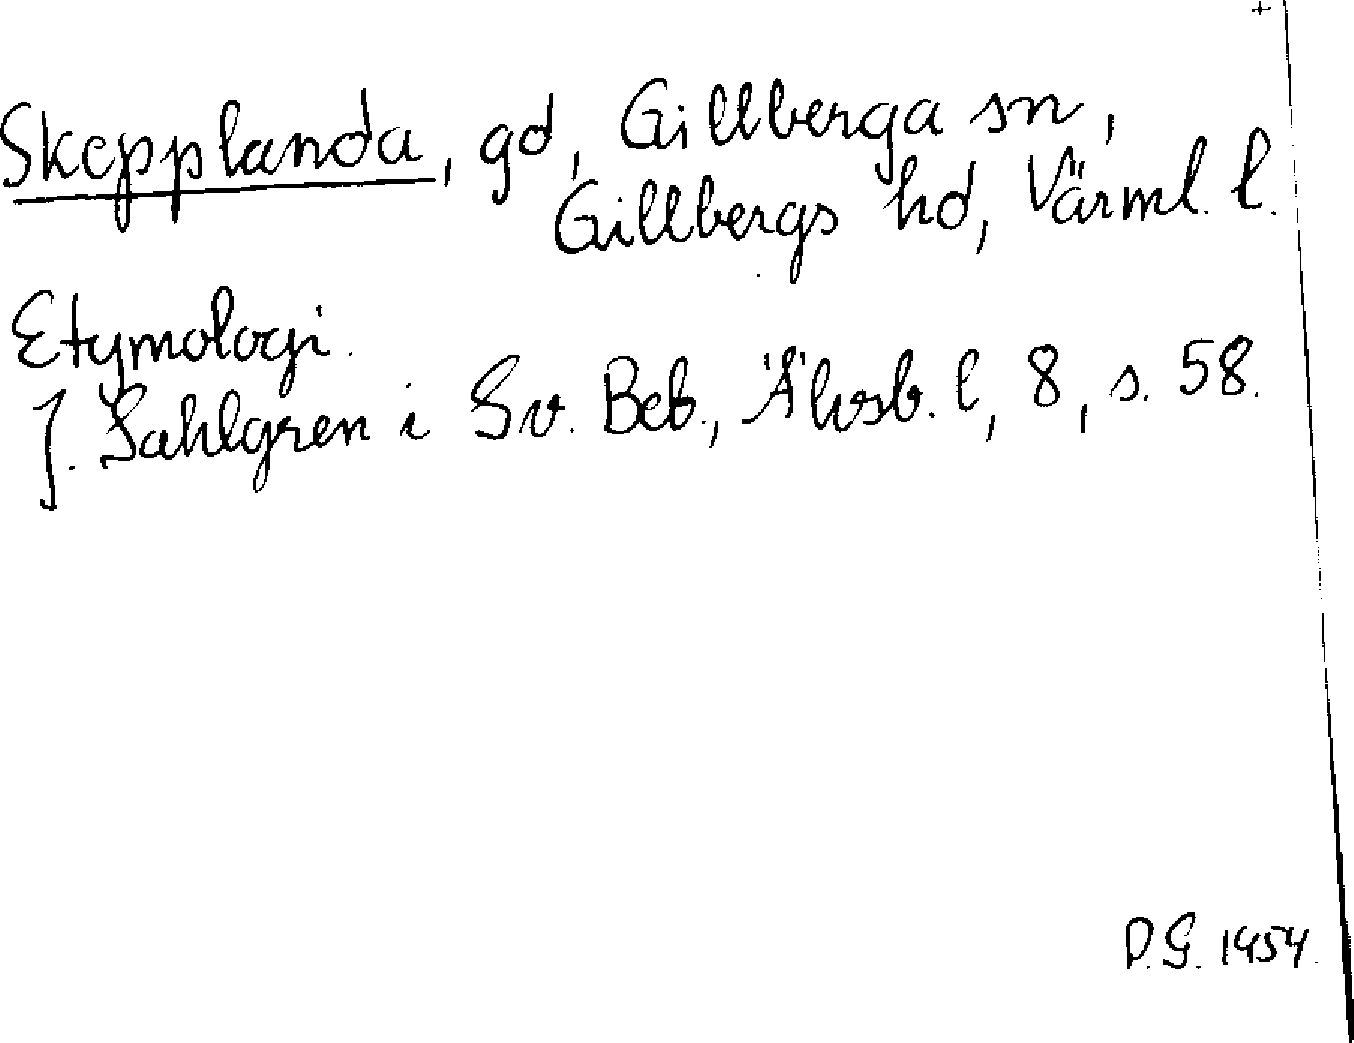 Skepplanda, gd, Gillberga sn,
Gillbergs hd, Värml. l.
Etymologi.
J. Sahlgren i Sv. Beb., Älvsb. l, 8, s. 58.
D.G. 1954.